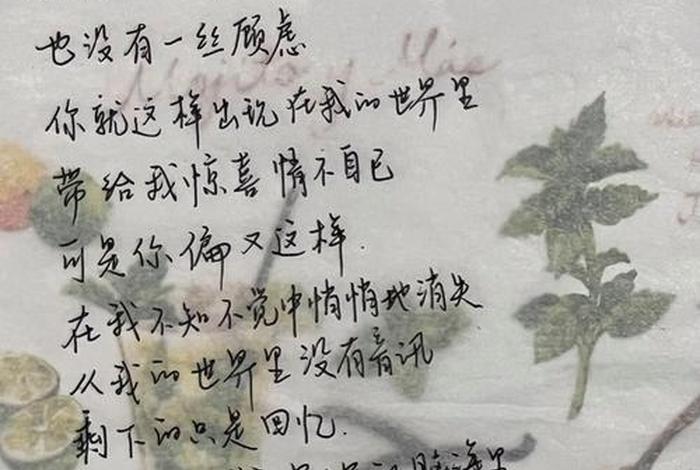 也没有一丝顾虑
你就这样出现在我的世界里
带给我惊喜情不自已
可是你偏又这样.
在我不知不觉中悄悄地消失.
从我的世界里没有音讯
剩下的只是回忆.